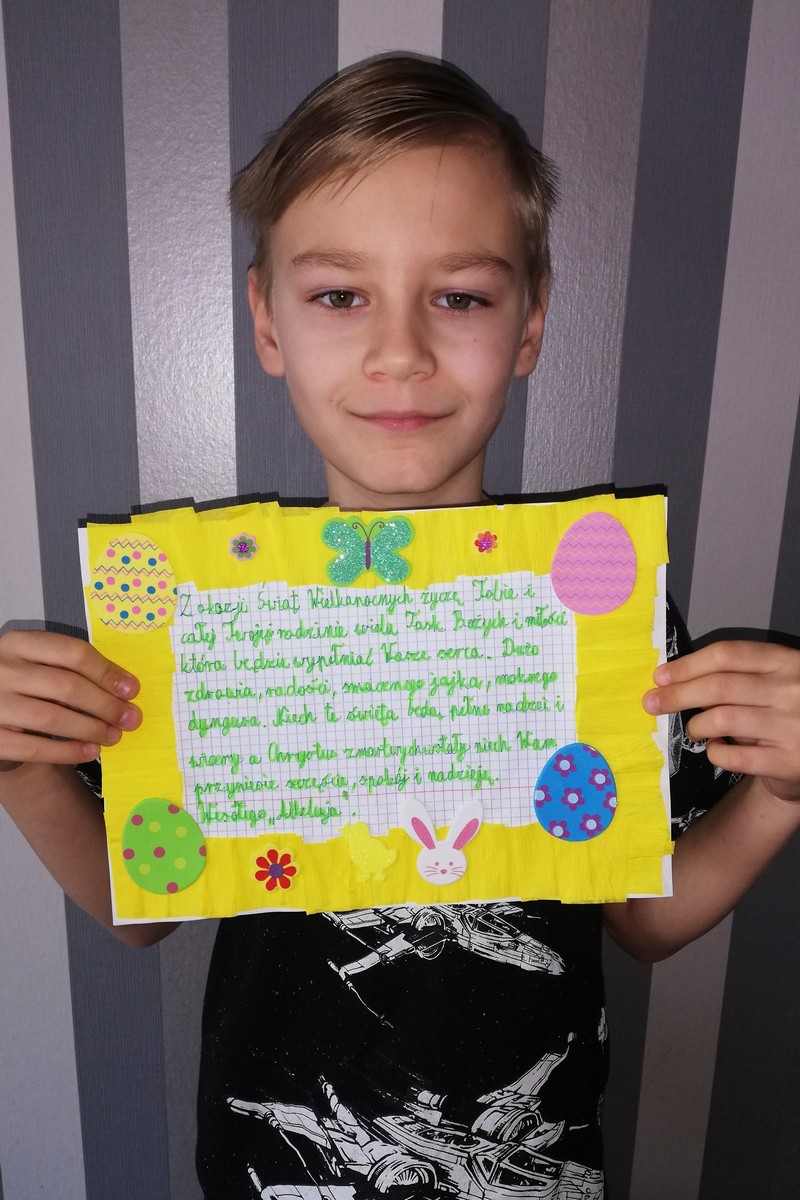 Z okazji Świąt Wielkanocnych życzę Tobie i
całej Twojej rodzinie wielu Łask Bożych i miłości
która będzie wypełniać Wasze serca. Dużo
zdrowia, radości, smacznego jajka, mokrego
dyngusa. Niech te święta będą pełne nadzei i
wiary a Chrystus zmartwychwstały niech Wam
przyniesie szczęście, spokój i nadzieję.
Wesołego „Alleluja".